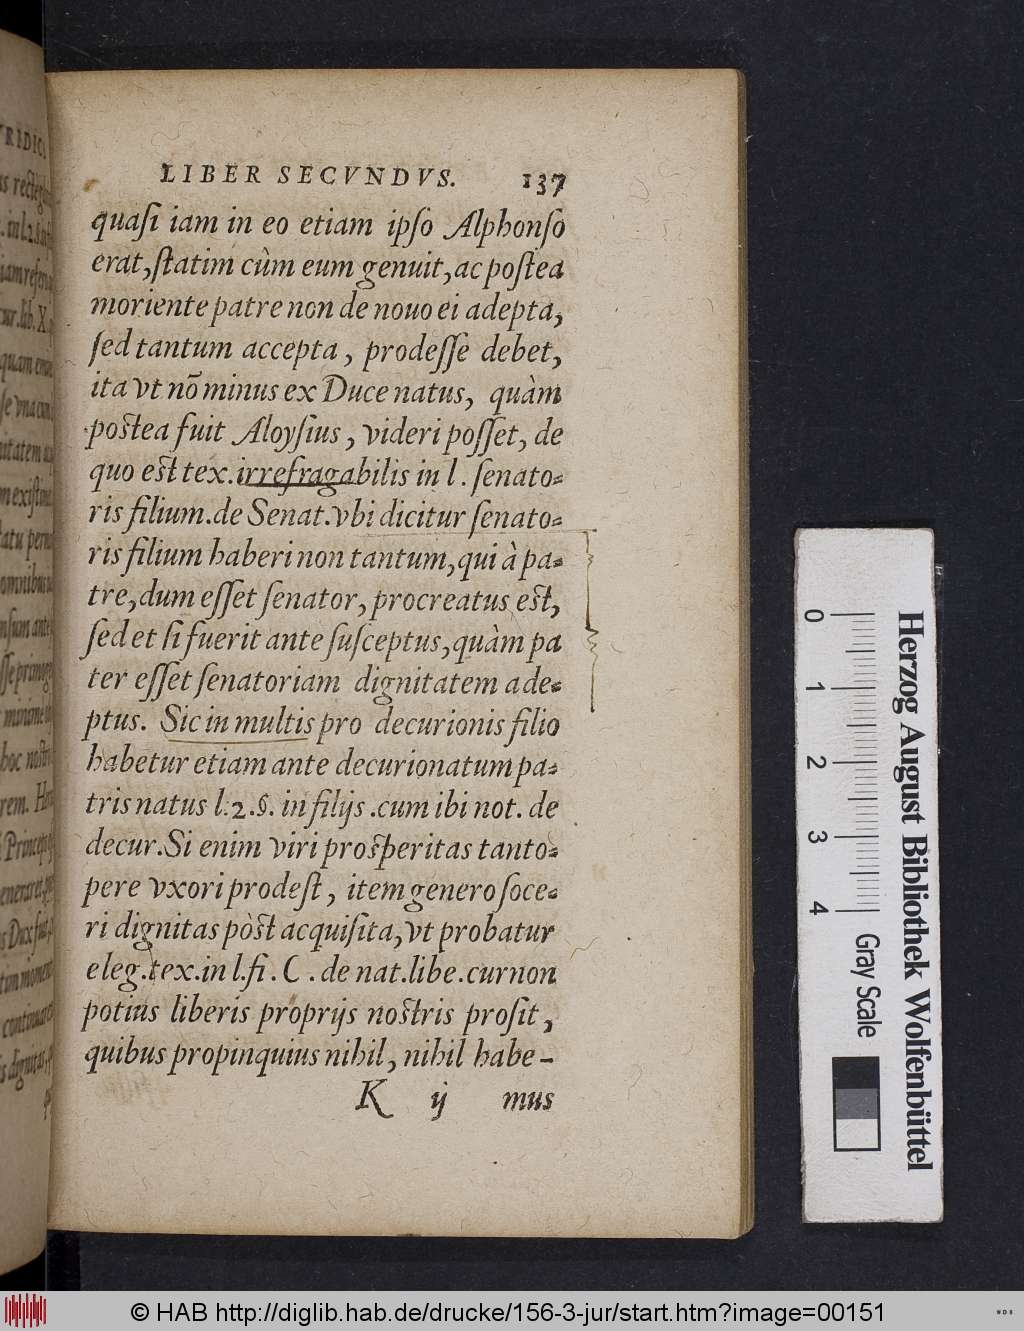 LIBER SECVNDVS. 137
quaſi iam in eo etiam ipſo Alphonſo
erat, ſtatim cùm eum genuit, ac poſtea
moriente patre non de nouo ei adepta,
ſed tantum accepta, prodeſſe debet,
ita vt nō minus ex Duce natus, quàm
poſtea fuit Aloyſius, videri poſſet, de
quo eſt tex. irrefragabilis in l. ſenato-
ris filium. de Senat. vbi dicitur ſenato-
ris filium haberi non tantum, qui à pa-
tre, dum eſſet ſenator, procreatus eſt,
ſed et ſi fuerit ante ſuſceptus, quàm pa
ter eſſet ſenatoriam dignitatem ade-
ptus. Sic in multis pro decurionis filio
habetur etiam ante decurionatum pa-
tris natus l. 2. §. in filijs. cum ibi not. de
decur. Si enim viri proſperitas tanto-
pere vxori prodeſt, item genero ſoce-
ri dignitas pòſt acquiſita, vt probatur
eleg. tex. in l. fi. C. de nat. libe. cur non
potius liberis proprijs noſtris proſit,
quibus propinquius nihil, nihil habe-
K ij mus
0 1 2 3 4
Gray Scale
Herzog August Bibliothek Wolfenbüttel
© HAB http://diglib.hab.de/drucke/156-3-jur/start.htm?image=00151